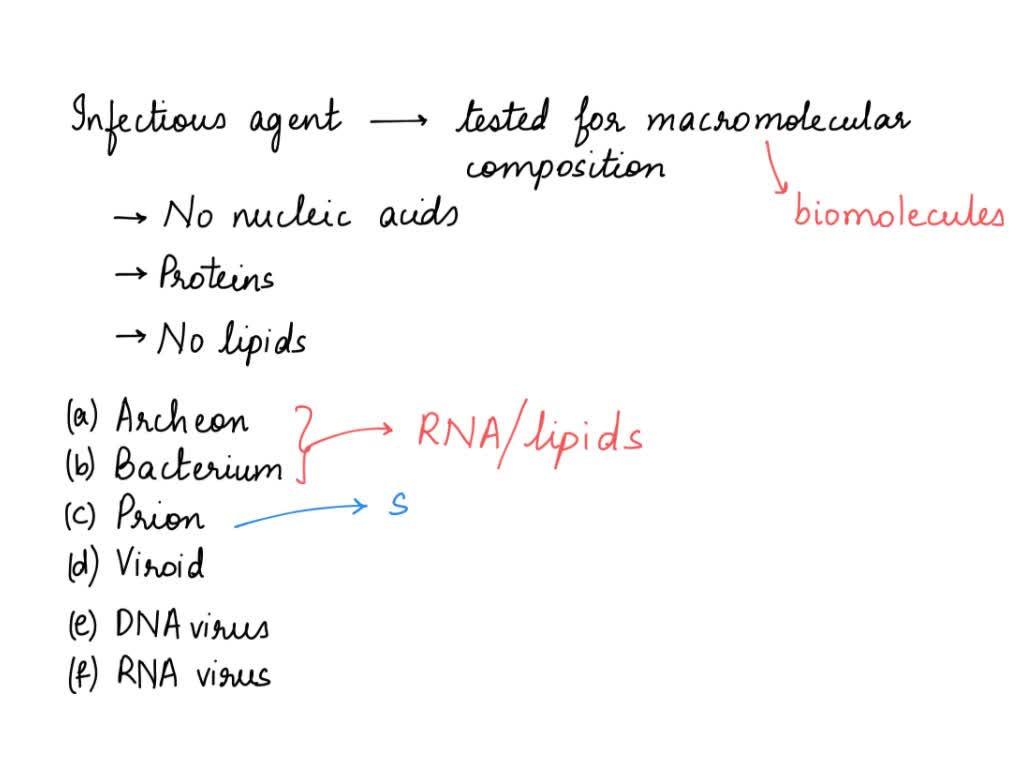 Infectious agent → tested for macromolecular
composition
biomolecules
→ No nucleic acids
→ Proteins
→ No lipids
(a) Archeon
(b) Bacterium
RNA/lipids
(c) Prion → s
(d) Viroid
(e) DNA virus
(f) RNA virus